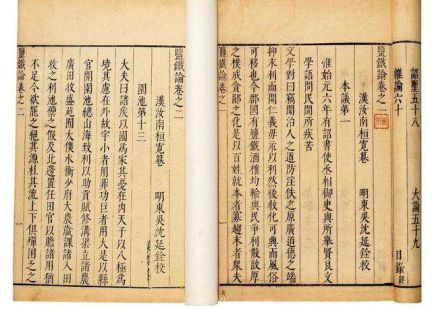 詔聖五十八 大論五十九
雜論六十
目錄終
鹽鐵論卷之一
漢汝南桓寬撰 明東吳沈延銓校
本議第一
惟始元六年有詔書使丞相御史與所舉賢良文
學語問民間所疾苦
文學對曰竊聞治人之道防淫佚之原廣道德之端
抑末利而開仁義毋示以利然後教化可興而風俗
可移也今郡國有鹽鐵酒榷均輸與民爭利散敦厚
之樸成貪鄙之化是以百姓就本者寡趨末者衆夫
鹽鐵論卷之二
漢汝南桓寬撰 明東吳沈延銓校
園池第十三
大夫曰諸侯以國爲家其憂在內天子以八極爲
境其慮在外故宇小者用菲功巨者用大是以縣
官開園池總山海致利以助貢賦修溝渠立諸農
廣田牧盛苑囿太僕水衡少府大農歲課諸入田
牧之利池籞之假及北邊置任田官以贍諸用猶
不足今欲罷之絕其源杜其流上下俱殫困乏之
鹽鐵論卷之二